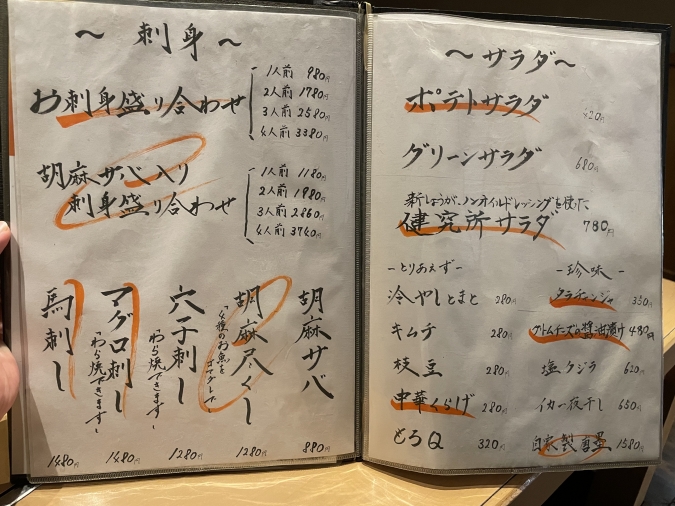 ～ 刺身 ～
お刺身盛り合わせ
1人前 980円
2人前 1780円
3人前 2580円
4人前 3380円
胡麻サバ入り
刺身盛り合わせ
1人前 1180円
2人前 1980円
3人前 2860円
4人前 3740円
胡麻サバ
880円
胡麻尽くし
1280円
穴子刺し
「わら焼できます」
1280円
マグロ刺し
「わら焼できます」
1480円
馬刺し
1480円
～ サラダ ～
ポテトサラダ 420円
グリーンサラダ 680円
新しょうが、ノンオイルドレッシングを使けた、
健究所サラダ 780円
－とりあえず－
冷やしとまと 280円
キムチ 280円
枝豆 280円
中華くらげ 280円
とろQ 320円
－珍味－
タラチャンジャ 350円
クリームチーズの醤油漬け 480円
塩クジラ 620円
イカ一夜干し 650円
自家製 1580円